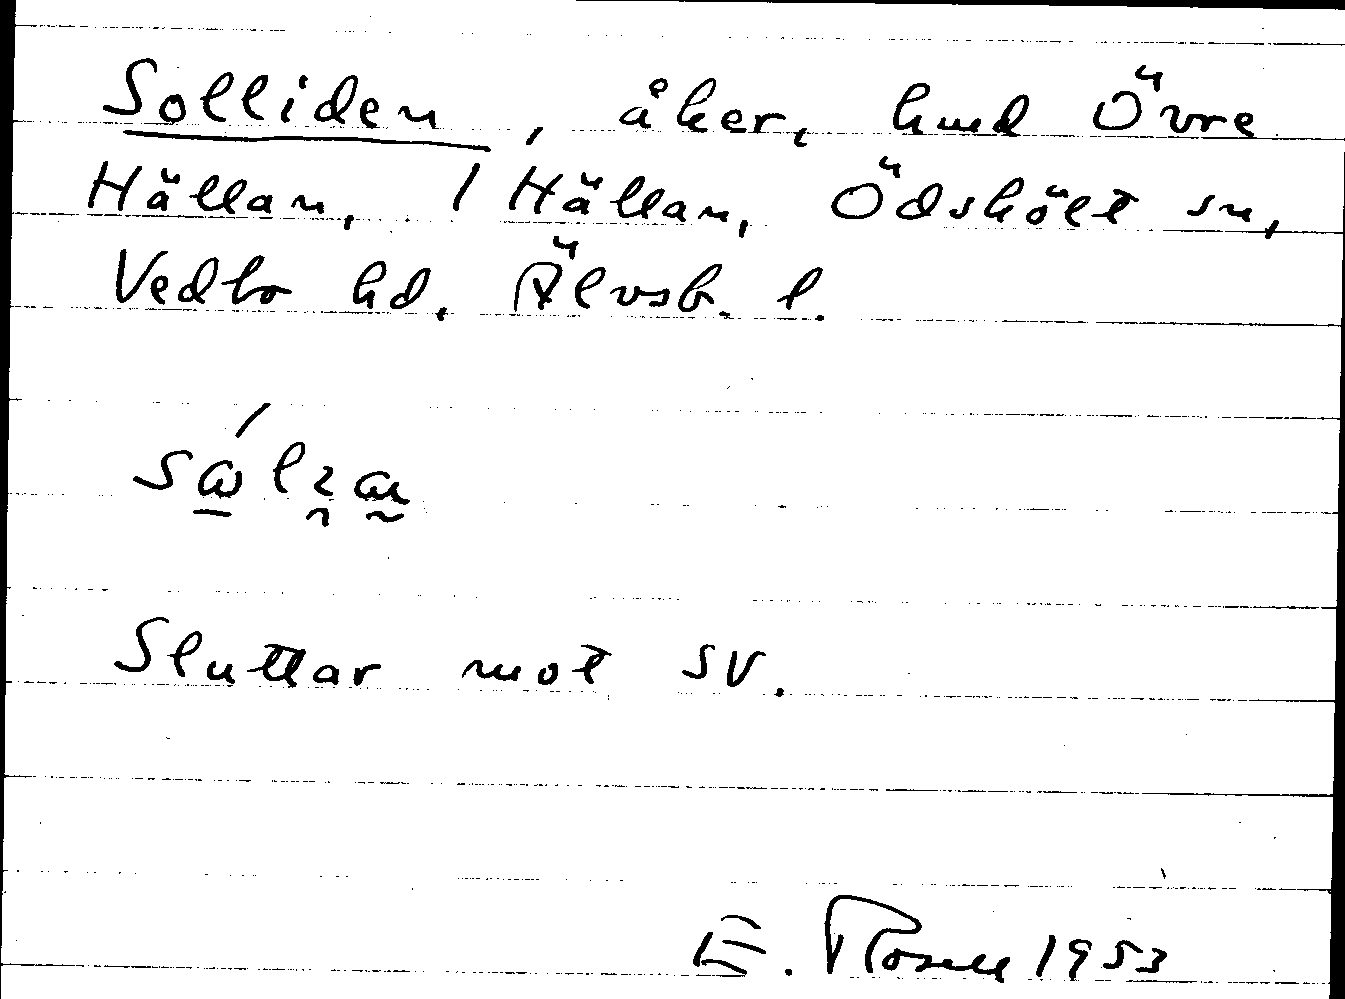 Solliden, åker, hmd Övre
Hällan, / Hällan, Ödskölt sn,
Vedbo hd. Älvsb. l.
Sluttar mot SV.
E. Rosell 1953